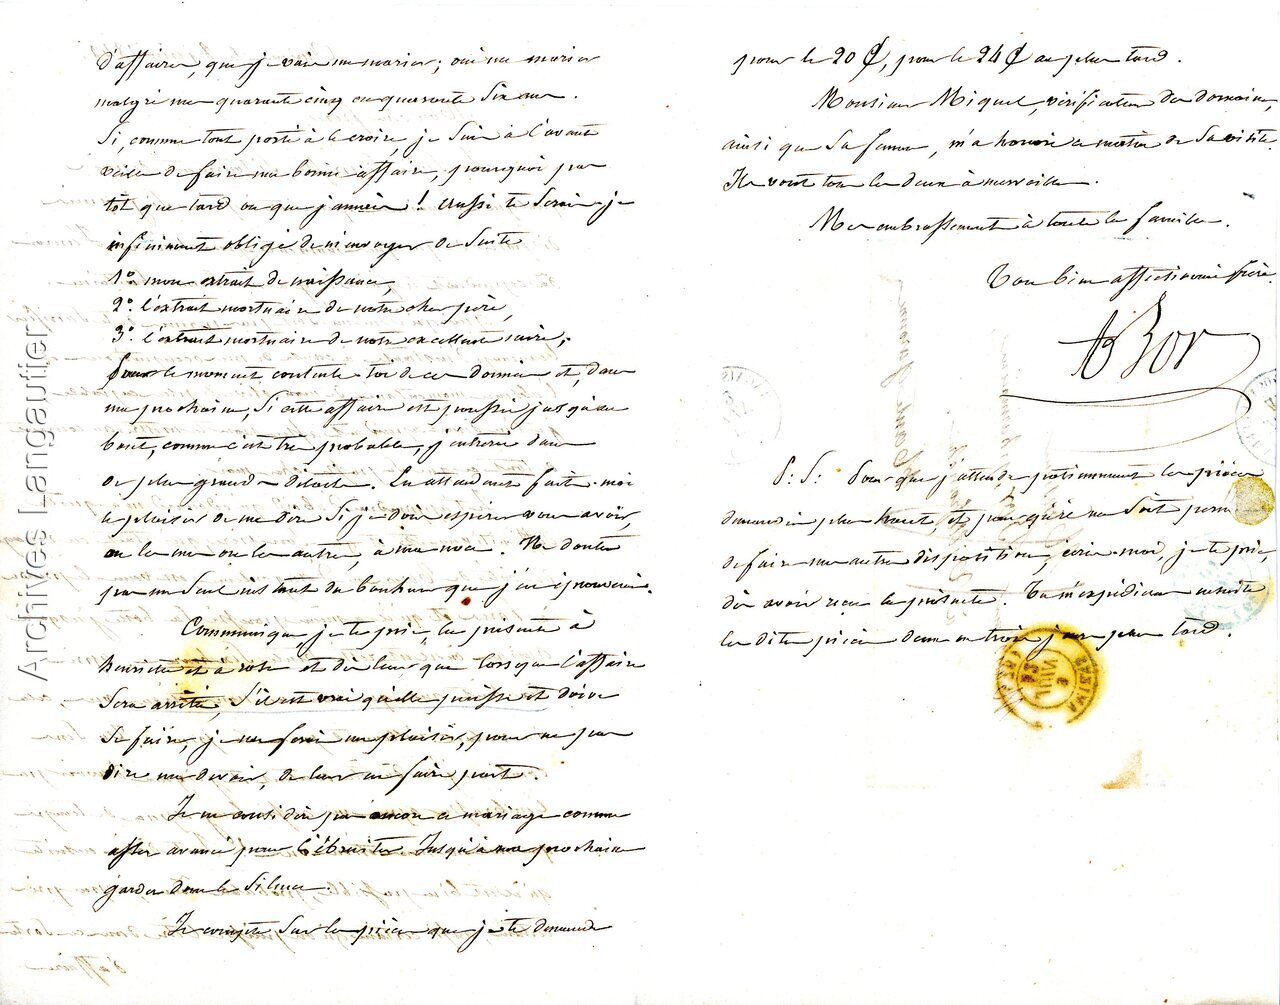 d'affaires, que je vais me marier; oui me marier
malgré mes quarante cinq ou quarante six ans.
Si, comme tout porte à le croire, je suis à l'avant
veille de faire une bonne affaire, pourquoi pas
tôt que tard ou que jamais! Aussi te serai-je
infiniment obligé de m'envoyer de suite
1°. mon extrait de naissance,
2°. l'extrait mortuaire de notre cher père,
3°. l'extrait mortuaire de notre excellente mère;
Pour le moment contente-toi de ces données et, dans
ma prochaine, si cette affaire est poussée jusqu'au
bout, comme c'est très probable, j'entrerai dans
de plus grands détails. En attendant fais-moi
le plaisir de me dire si je dois espérer vous avoir,
ou les uns ou les autres, à ma noce. Ne doutez
pas un seul instant du bonheur que j'en éprouverai.
Communique, je te prie, la présente à
et à et dis leur que lorsque l'affaire
sera arrêtée, s'il est vrai qu'elle puisse et doive
se faire, je me ferai un plaisir, pour ne pas
dire un devoir, de leur en faire part.
Je ne considère pas encore ce mariage comme
assez avancé pour l'ébruiter. Jusqu'à ma prochaine
gardez donc le silence.
Je compte sur les pièces que je te demande
pour le 20 ct, pour le 24 ct au plus tard.
Monsieur Miquel, vérificateur des domaines,
ainsi que sa femme, m'a honoré ce matin de sa visite.
Ils vont tous les deux à merveille.
Mes embrassements à toute la famille.
Ton bien affectionné frère.
Bor
P.S. Pour que j'attende patiemment les pièces
demandées plus haut, et pour qu'il me soit permis
de faire une autre disposition, écris-moi, je te prie,
dès avoir reçu la présente. Tu m'expédieras ensuite
les dites pièces deux ou trois jours plus tard.
d'affaire
Archives Langautier